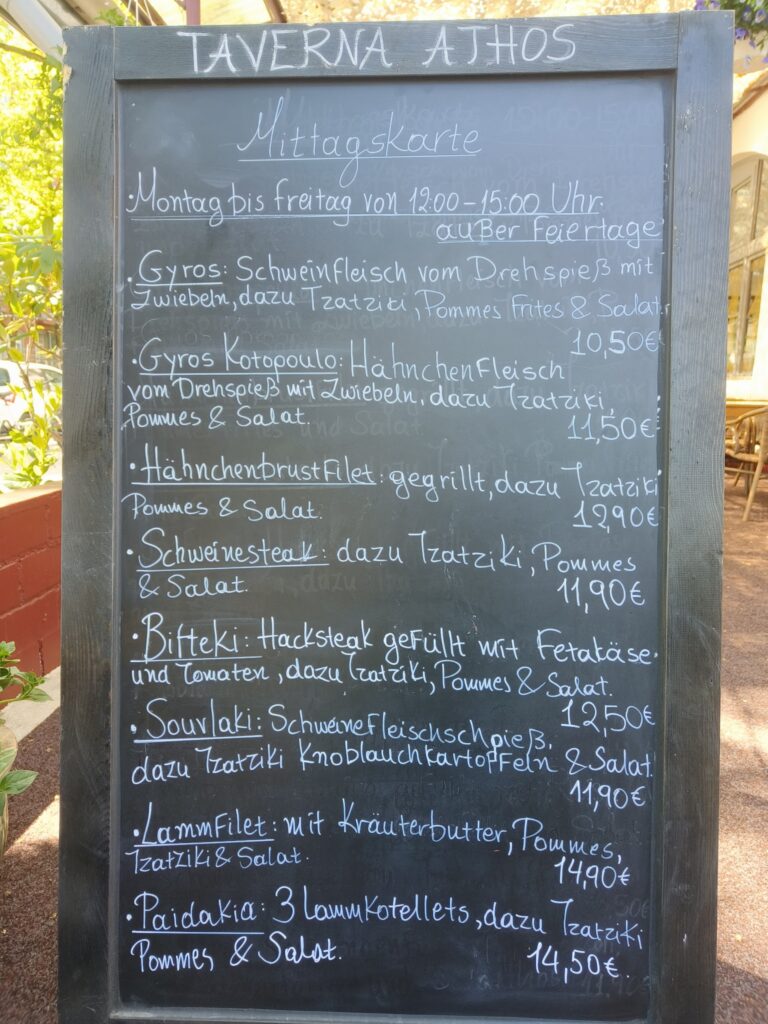 TAVERNA ATHOS
Mittagskarte
· Montag bis Freitag von 12:00 – 15:00 Uhr.
außer Feiertage
· Gyros: Schweinfleisch vom Drehspieß mit
Zwiebeln, dazu Tzatziki, Pommes Frites & Salat.
10,50€
· Gyros Kotopoulo: Hähnchenfleisch
vom Drehspieß mit Zwiebeln, dazu Tzatziki,
Pommes & Salat.
11,50€
· Hähnchenbrustfilet: gegrillt, dazu Tzatziki
Pommes & Salat.
12,90€
· Schweinesteak: dazu Tzatziki, Pommes
& Salat.
11,90€
· Bifteki: Hacksteak gefüllt mit Fetakäse
und Tomaten, dazu Tzatziki, Pommes & Salat.
12,50€
· Souvlaki: Schweinefleischschpieß,
dazu Tzatziki Knoblauchkartoffeln & Salat.
11,90€
· Lammfilet: mit Kräuterbutter, Pommes,
Tzatziki & Salat.
14,90€
· Paidakia: 3 Lammkotellets, dazu Tzatziki
Pommes & Salat.
14,50€.